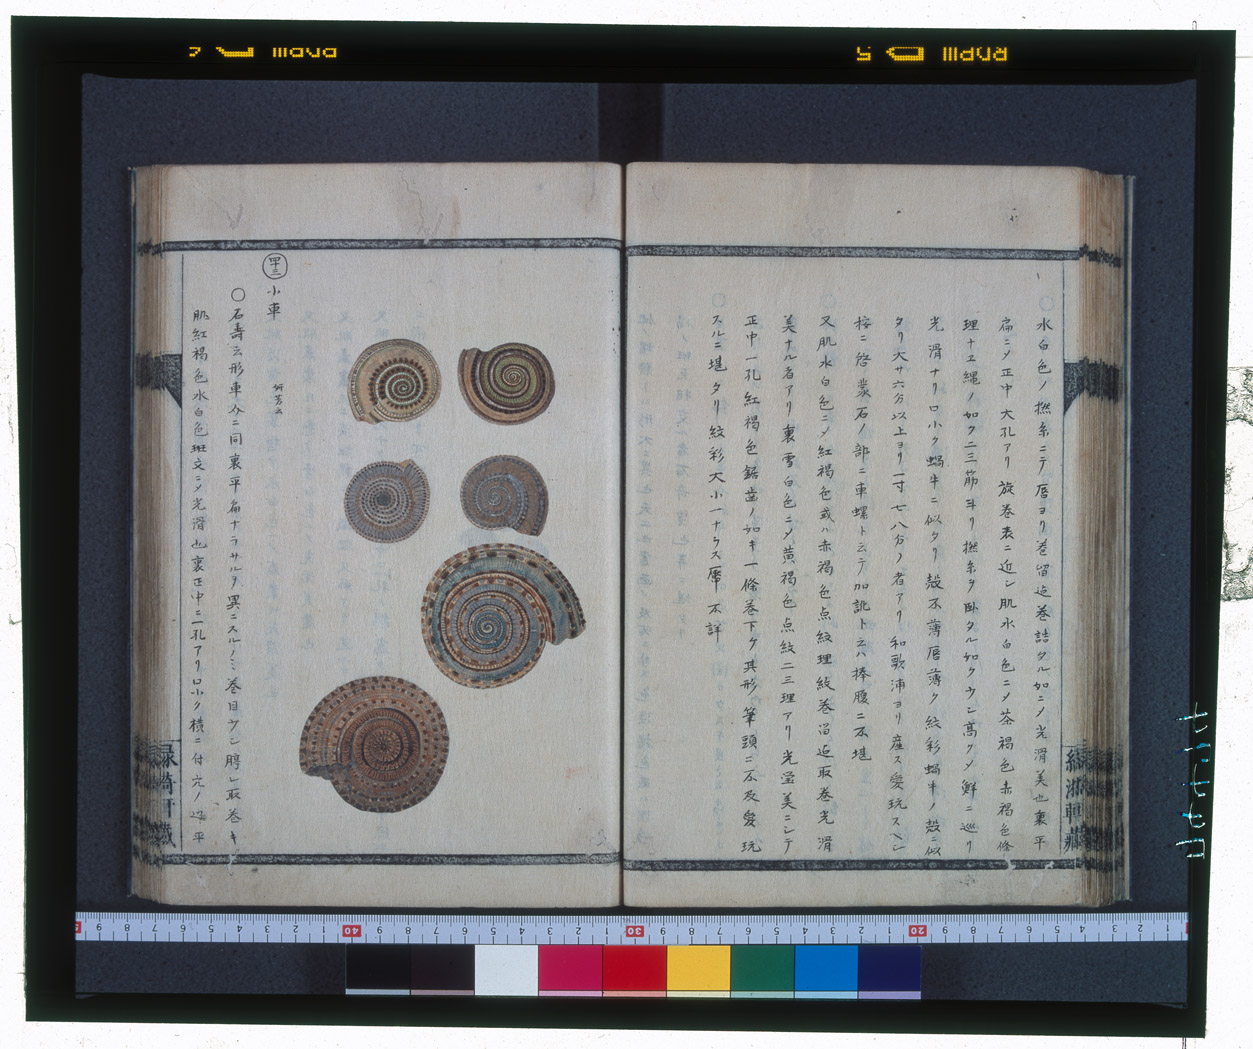 水白色ノ撚糸ニテ唇ヨリ巻留迠巻詰タル如ニメ光滑美也裏平
扁ニメ正中大孔アリ旋巻表ニ近シ肌水白色ニメ茶褐色赤褐色條
理十エ縄ノ如ク二三筋ヨリ撚糸タ卧タル如クウン高クメ鮮ニ巡リ
光滑ナリ口小ク蝸牛ニ似タリ殻不薄唇薄ク紋彩蝸牛ノ殻ニ似
タリ大サ六分以上ヨリ一寸七八分ノ者アリ和歌浦ヨリ産ス愛玩スヘシ
按ニ啓蒙石ノ部ニ車螺ト云テ加訛ト云ハ捧腹ニ不堪
又肌水白色ニメ紅褐色或ハ赤褐色点紋理紋巻畄迠取巻光滑
美ナル者アリ裏雪白色ニメ黄褐色点紋二三理アリ光瑩美ニシテ
正中一孔紅褐色鋸歯ノ如キ一條巻下ケ其形筆頭ニ不及愛玩
スルニ堪タリ紋彩大小一ナラス
不詳
四十三
小車
何芳云
〇石壽云形車介ニ同裏平扁ナラサルヲ異ニスルノミ巻目ウン
取巻キ
肌紅褐色水白色斑文ニメ光滑也裏正中ニ一孔アリ口小ク横ニ付
ノ
平
RDPIII
5
RDPIII
40
30
20